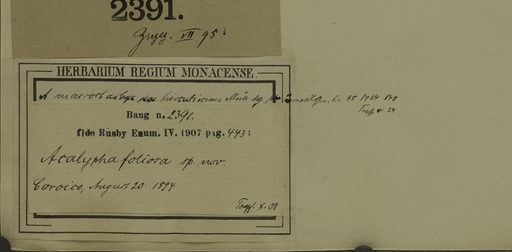 2391.
VII 95
HERBARIUM REGIUM MONACENSE.
A macrostachya var. hirsutissima Müll. Arg. 85 1924
Bang n. 2391.
fide Rusby Enum. IV. 1907 pag. 443:
Acalypha foliosa sp. nov.
Coroico, August 20. 1894
X. 08